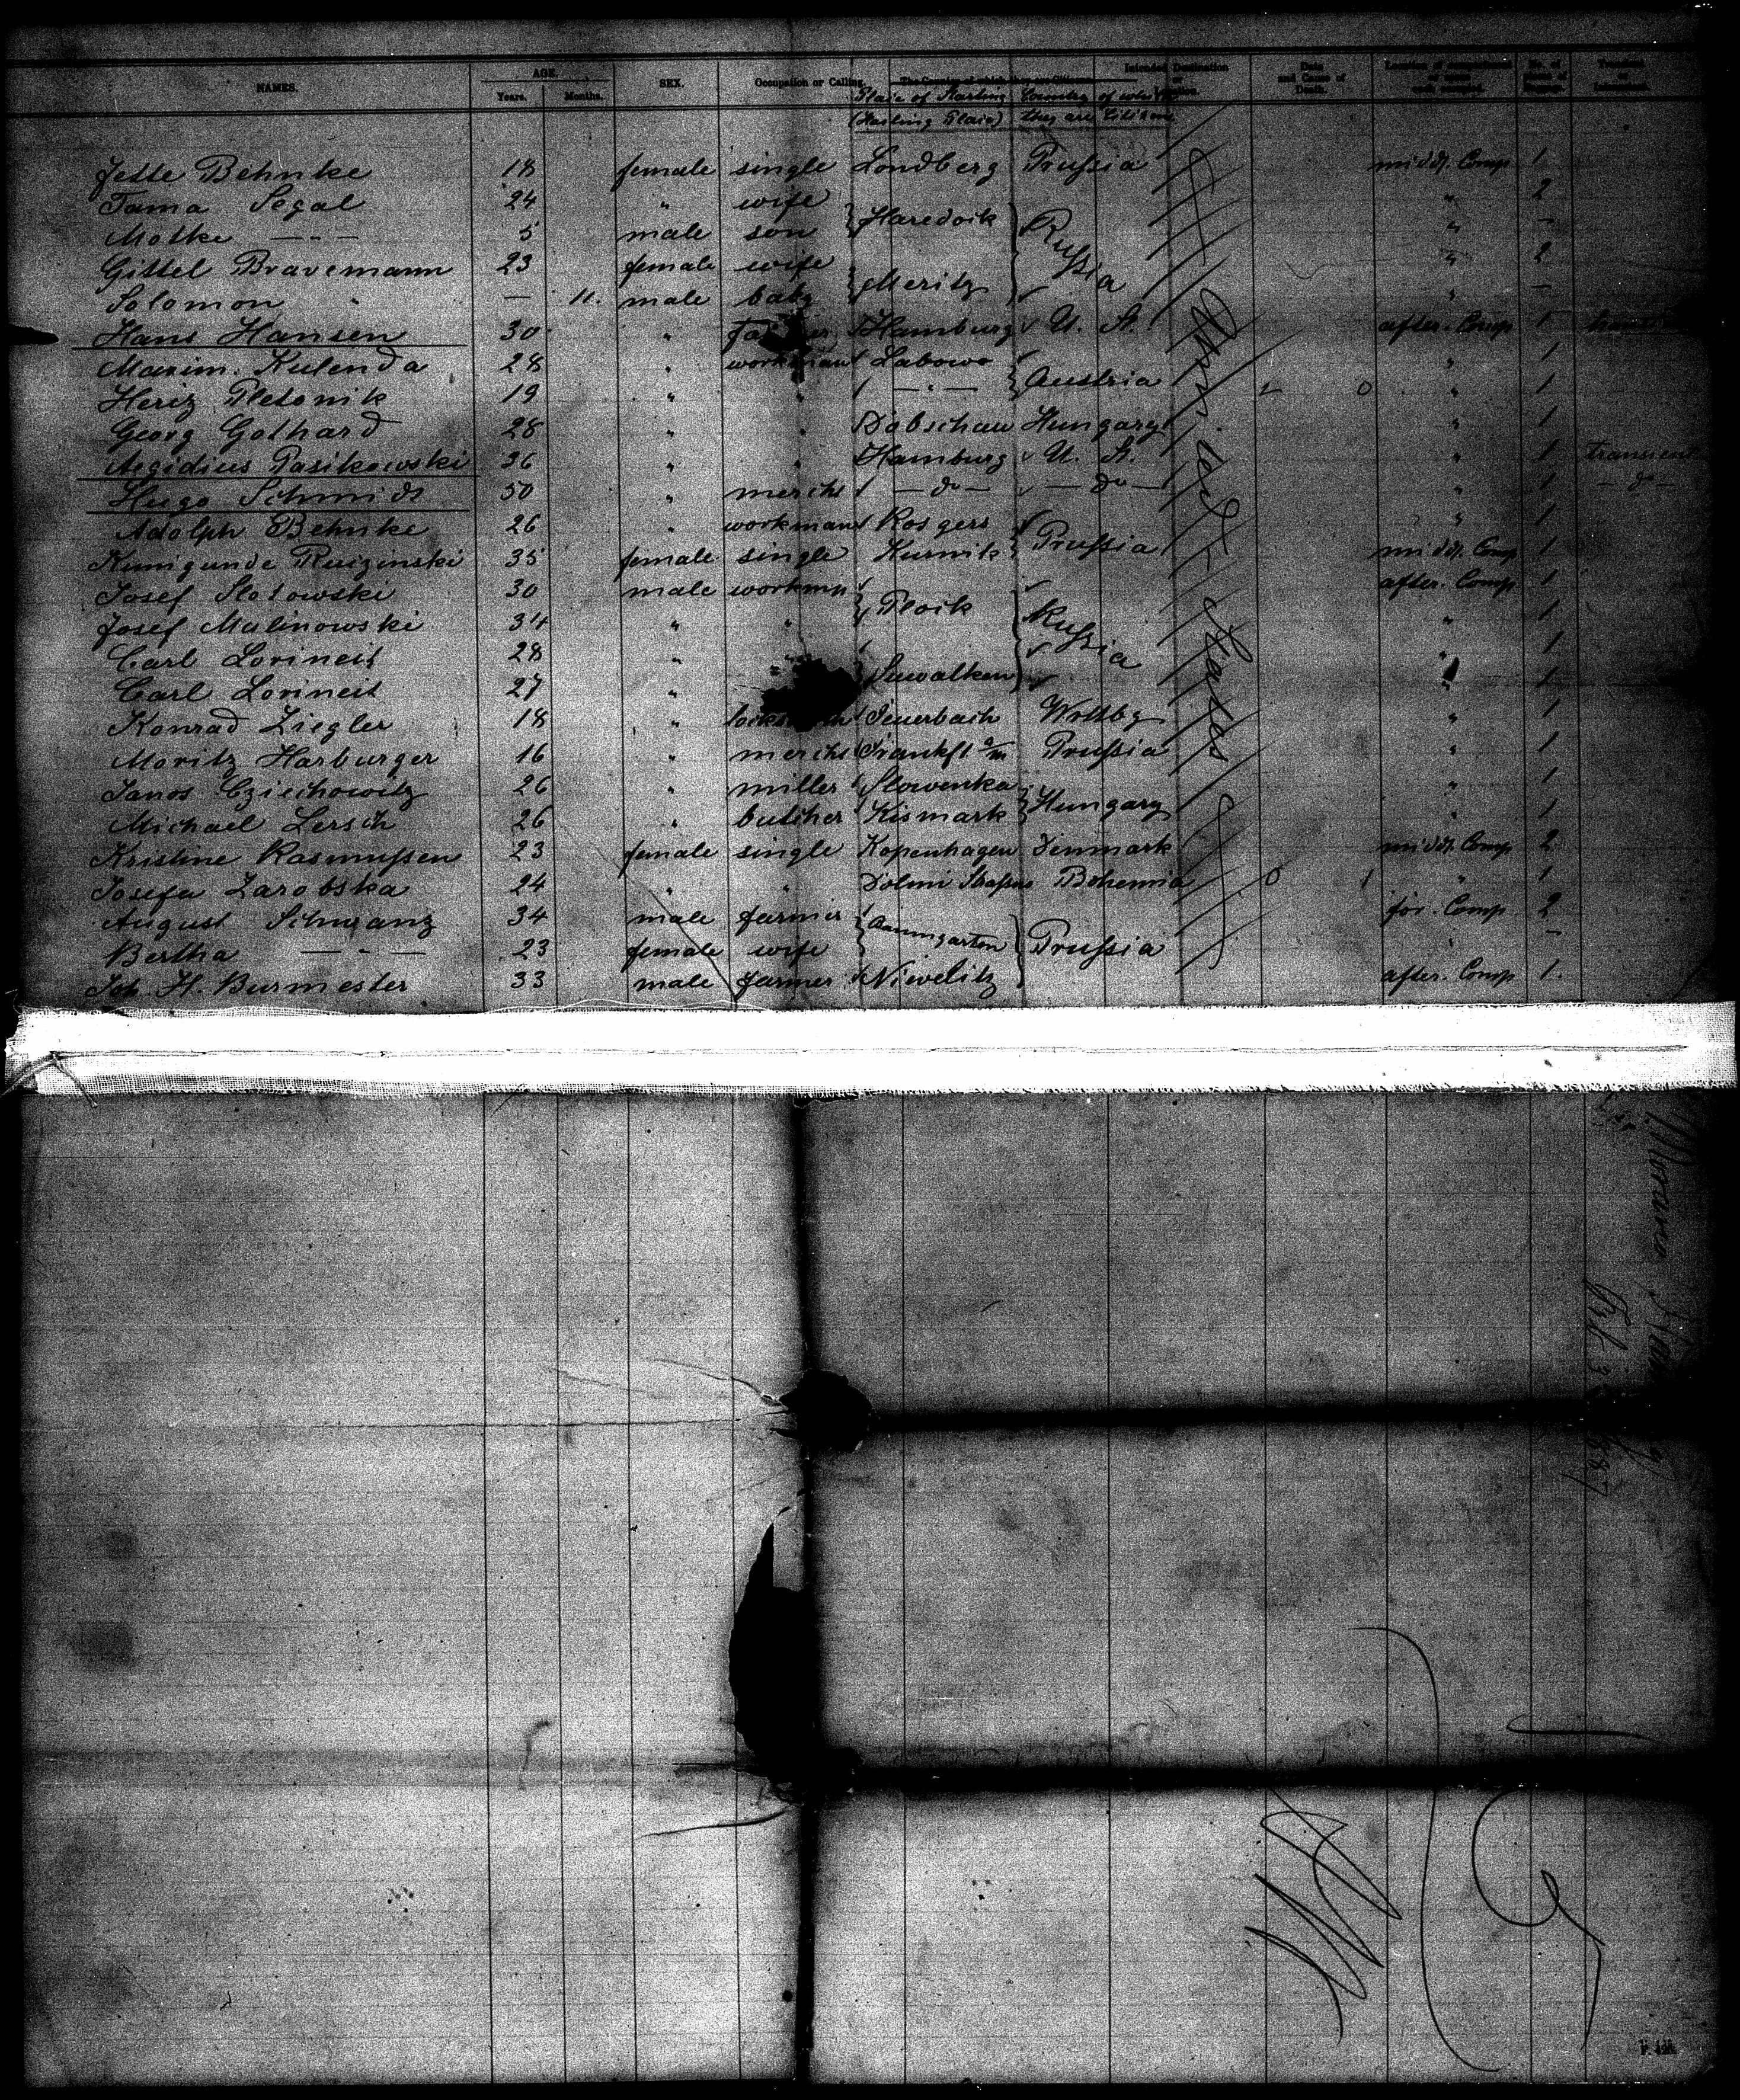 NAMES. AGE. SEX. Occupation or Calling. The Country of which they are Citizens. Intended Destination or Location. Date and Cause of Death. Location of compartment or space each occupied. No. of pieces of Baggage. Transient or
Years. Months. Place of Starting Country of which
(Starting Place) they are Citizens
Jette Behnke 18 female single Londberg Prussia midd. Comp 1
Tama Segal 24 " wife Haredoik Russia " 2
Motke — " — 5 male son " —
Gittel Bravemann 23 female wife Meritz " 2
Solomon " — 11. male baby " —
Hans Hansen 30 " Hamburg U. St. after. Comp 1
Maxim. Kulenda 28 " workman Labowo Austria " 1
Herz Pletonik 19 " " — " — " 1
Georg Gothard 28 " " Dobschau Hungary " 1
Aegidius Pasikowski 36 " " Hamburg U. St. " 1 transient
Hugo Schmidt 50 " mercht — do — — do — " 1 — do —
Adolph Behnke 26 " workman Rosgers Prussia " 1
Kunigunde Ruizinski 35 female single Kurnik midd. Comp 1
Josef Slotowski 30 male workmn Ploik Russia after. Comp 1
Josef Malinowski 34 " " " 1
Carl Lorineit 28 " " Suwalken " 1
Carl Lorineit 27 " " 1
Konrad Ziegler 18 " Feuerbach Wrttbg " 1
Moritz Harburger 16 " mercht Frankft a/m Prussia " 1
Janos Cziechowitz 26 " miller Slowenka Hungary " 1
Michael Lersch 26 " butcher Kismark " 1
Kristine Rasmussen 23 female single Kopenhagen Denmark midd. Comp 2
Josefa Zarobska 24 " " Dolmi Bohemia " 1
August Schwanz 34 male farmer Baumgarten Prussia for. Comp 2
Bertha — " — 23 female wife " —
Joh. H. Burmester 33 male farmer Niwelitz after. Comp 1.
United States